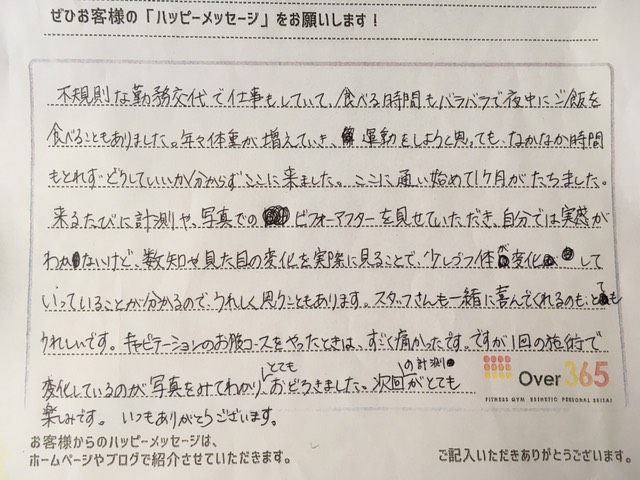 ぜひお客様の「ハッピーメッセージ」をお願いします!
不規則な勤務交代で仕事もしていて、食べる時間もバラバラで夜中にご飯を
食べることもありました。年々体重が増えていき、運動をしようと思っても、なかなか時間
もとれず、どうしていいか分からずここに来ました。ここに通い始めて1ヶ月がたちました。
来るたびに計測や、写真でのビフォーアフターを見せていただき、自分では実感が
わかないけど、数知や見た目の変化を実際に見ることで、少しづつ体が変化して
いっていることが分かるので、うれしく思うこともあります。スタッフさんも一緒に喜んでくれるのも、とても
うれしいです。キャビテーションのお腹コースをやったときは、すごく痛かったです。ですが1回の施術で
変化しているのが写真をみてわかり、とてもおどろきました。次回の計測がとても
楽しみです。いつもありがとうございます。
Over365
FITNESS GYM ESTHETIC PERSONAL SEITAI
お客様からのハッピーメッセージは、
ホームページやブログで紹介させていただきます。
ご記入いただきありがとうございます。